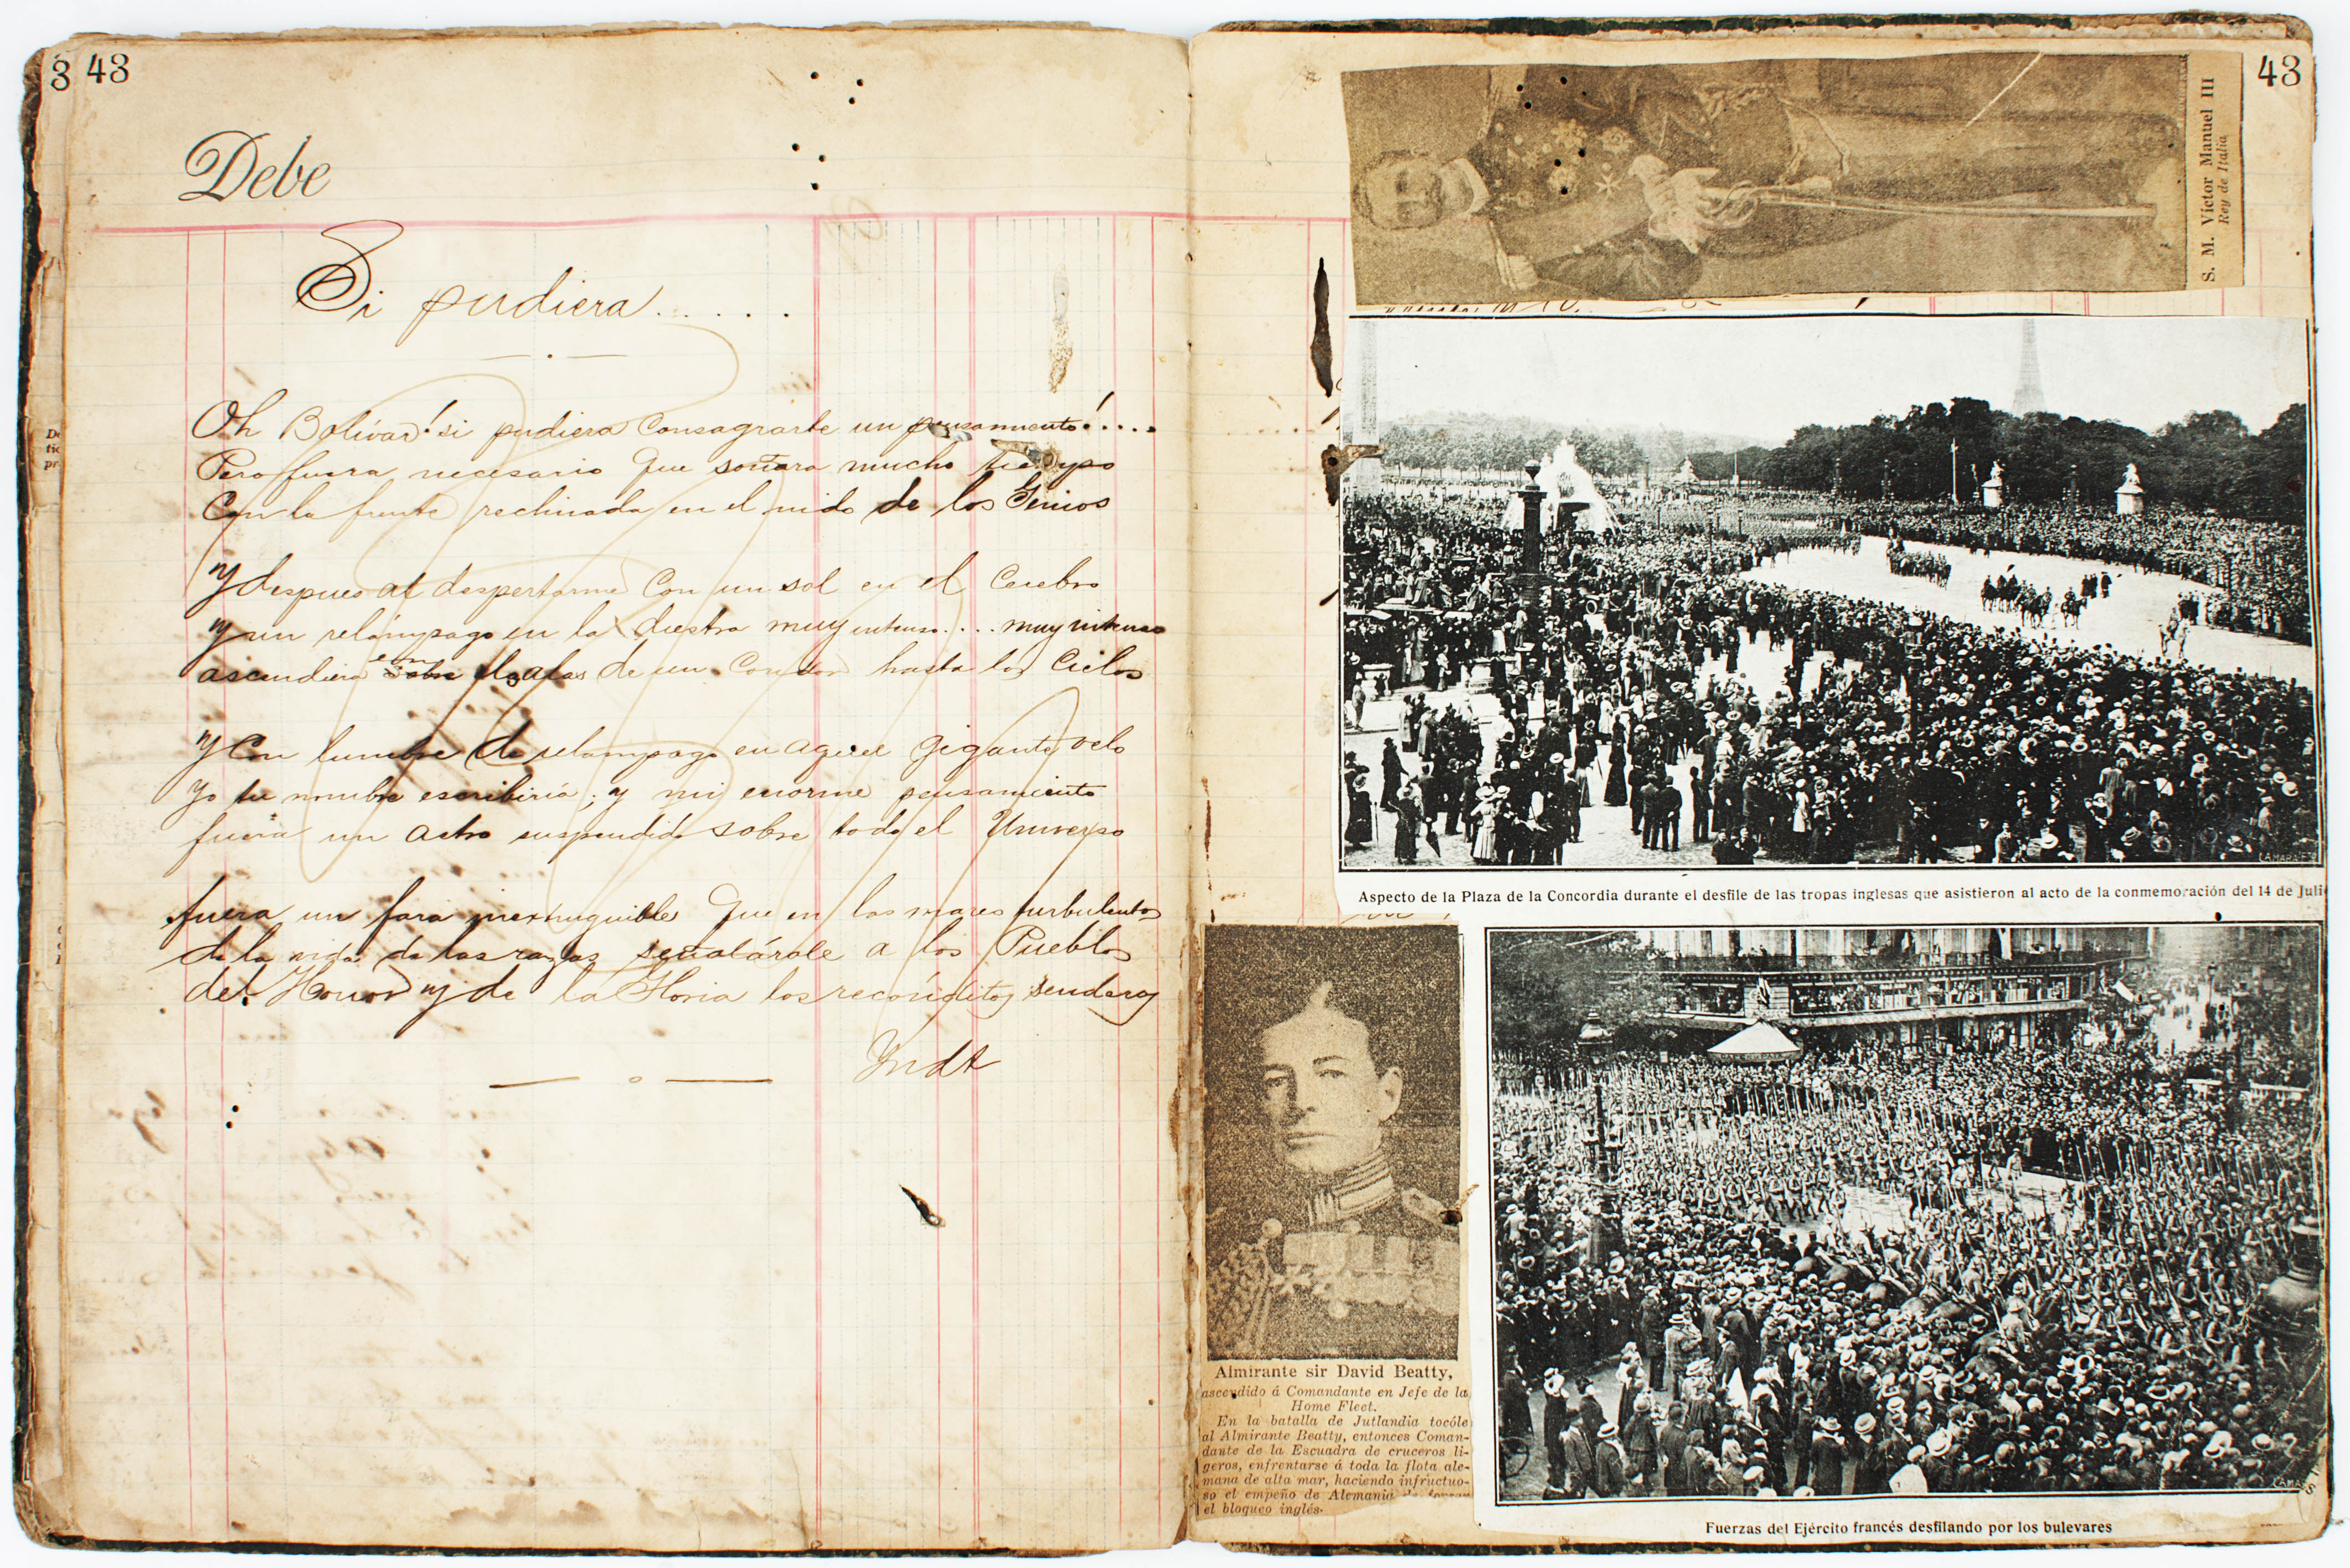 3 43
Debe
Si pudiera......
Oh Bolívar! si pudiera Consagrarte un pensamiento!....
Pero fuera necesario que soñara mucho tiempo
Con la frente reclinada en el nido de los Genios
Y despues al despertarme Con un sol en el Cerebro
Y un relámpago en la diestra muy intenso.... muy intenso
ascendiera en alas de un Condor hasta los Cielos
Y Con lumbre de relampago en aquel gigante velo
Yo tu nombre escribiria; y mi enorme pensamiento
fuera un astro suspendido sobre todo el Universo
fuera un faro inextinguible que en los mares turbulentos
de la vida de las razas señalárale a los Pueblos
del Honor y de la Gloria los recónditos senderos
43
S. M. Víctor Manuel III
Rey de Italia
Aspecto de la Plaza de la Concordia durante el desfile de las tropas inglesas que asistieron al acto de la conmemoración del 14 de Juli
Almirante sir David Beatty,
ascendido á Comandante en Jefe de la
Home Fleet.
En la batalla de Jutlandia tocóle
al Almirante Beatty, entonces Coman-
dante de la Escuadra de cruceros li-
geros, enfrentarse á toda la flota ale-
mana de alta mar, haciendo infructuo-
so el empeño de Alemania de forzar
el bloqueo inglés.
Fuerzas del Ejército francés desfilando por los bulevares